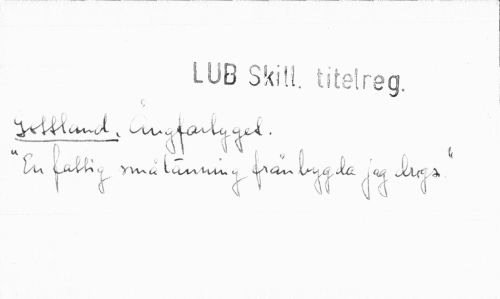 LUB Skill. titelreg.
Gottland, Ångfartyget.
"En fattig småtänning från bygda jag